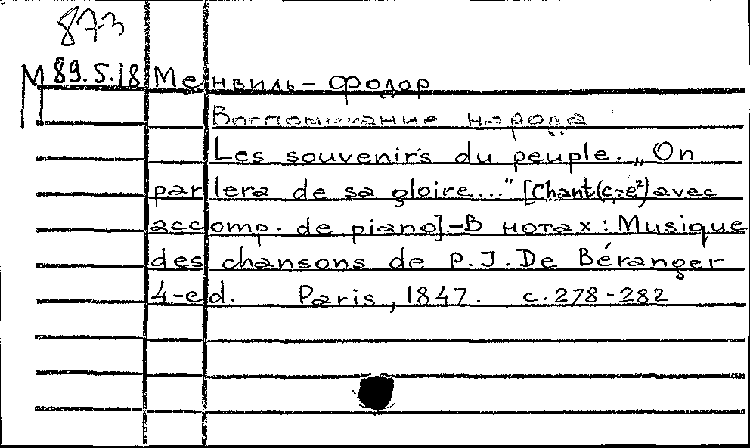 873
М 89.5.18 Менвиль-Фодор
Воспоминание народа
Les souvenirs du peuple. „On
parlera de sa gloire...." [Chant(c₁-e²) avec
accomp. de piano]-В нотах: Musique
des chansons de P.J.De Béranger
4-ed. Paris, 1847. c.278-282